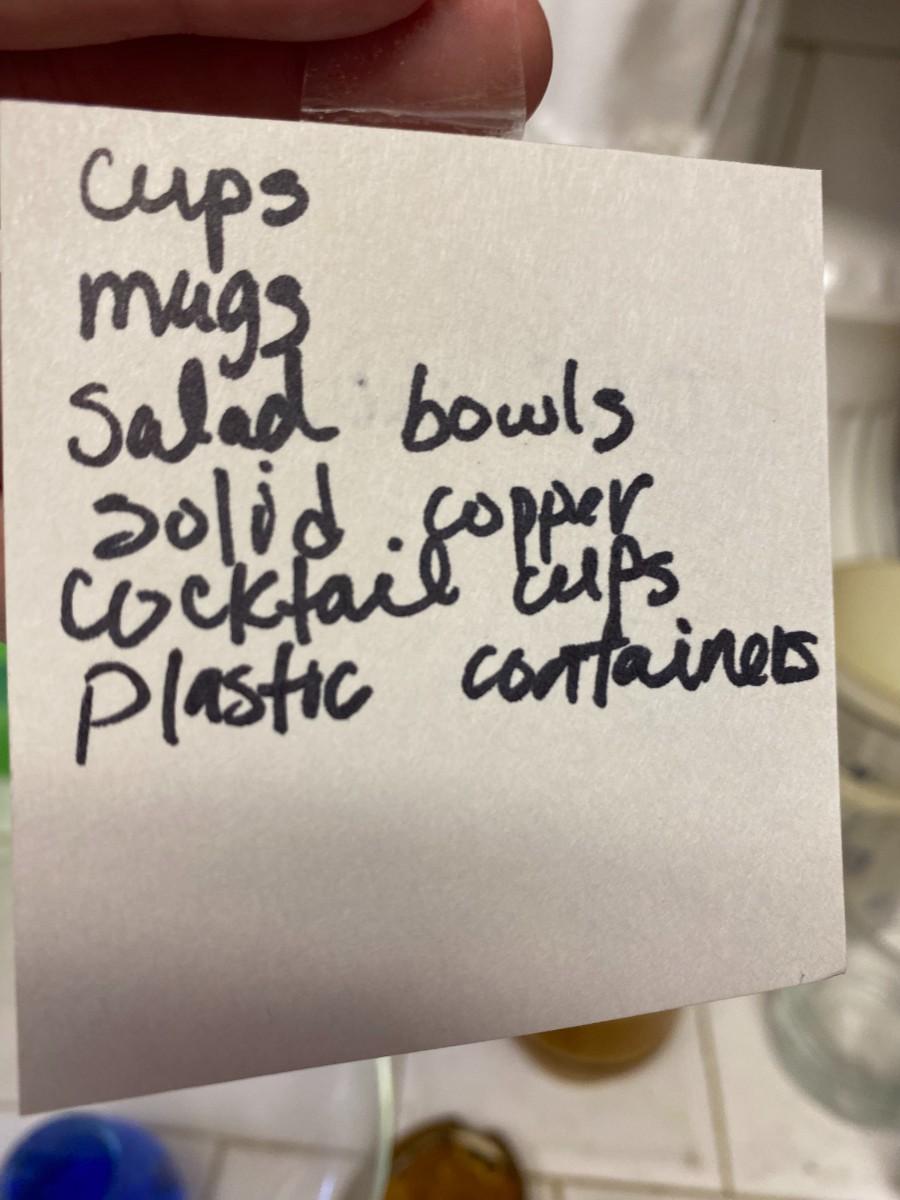 Cups
mugs
Salad bowls
solid copper
Cocktail cups
Plastic containers